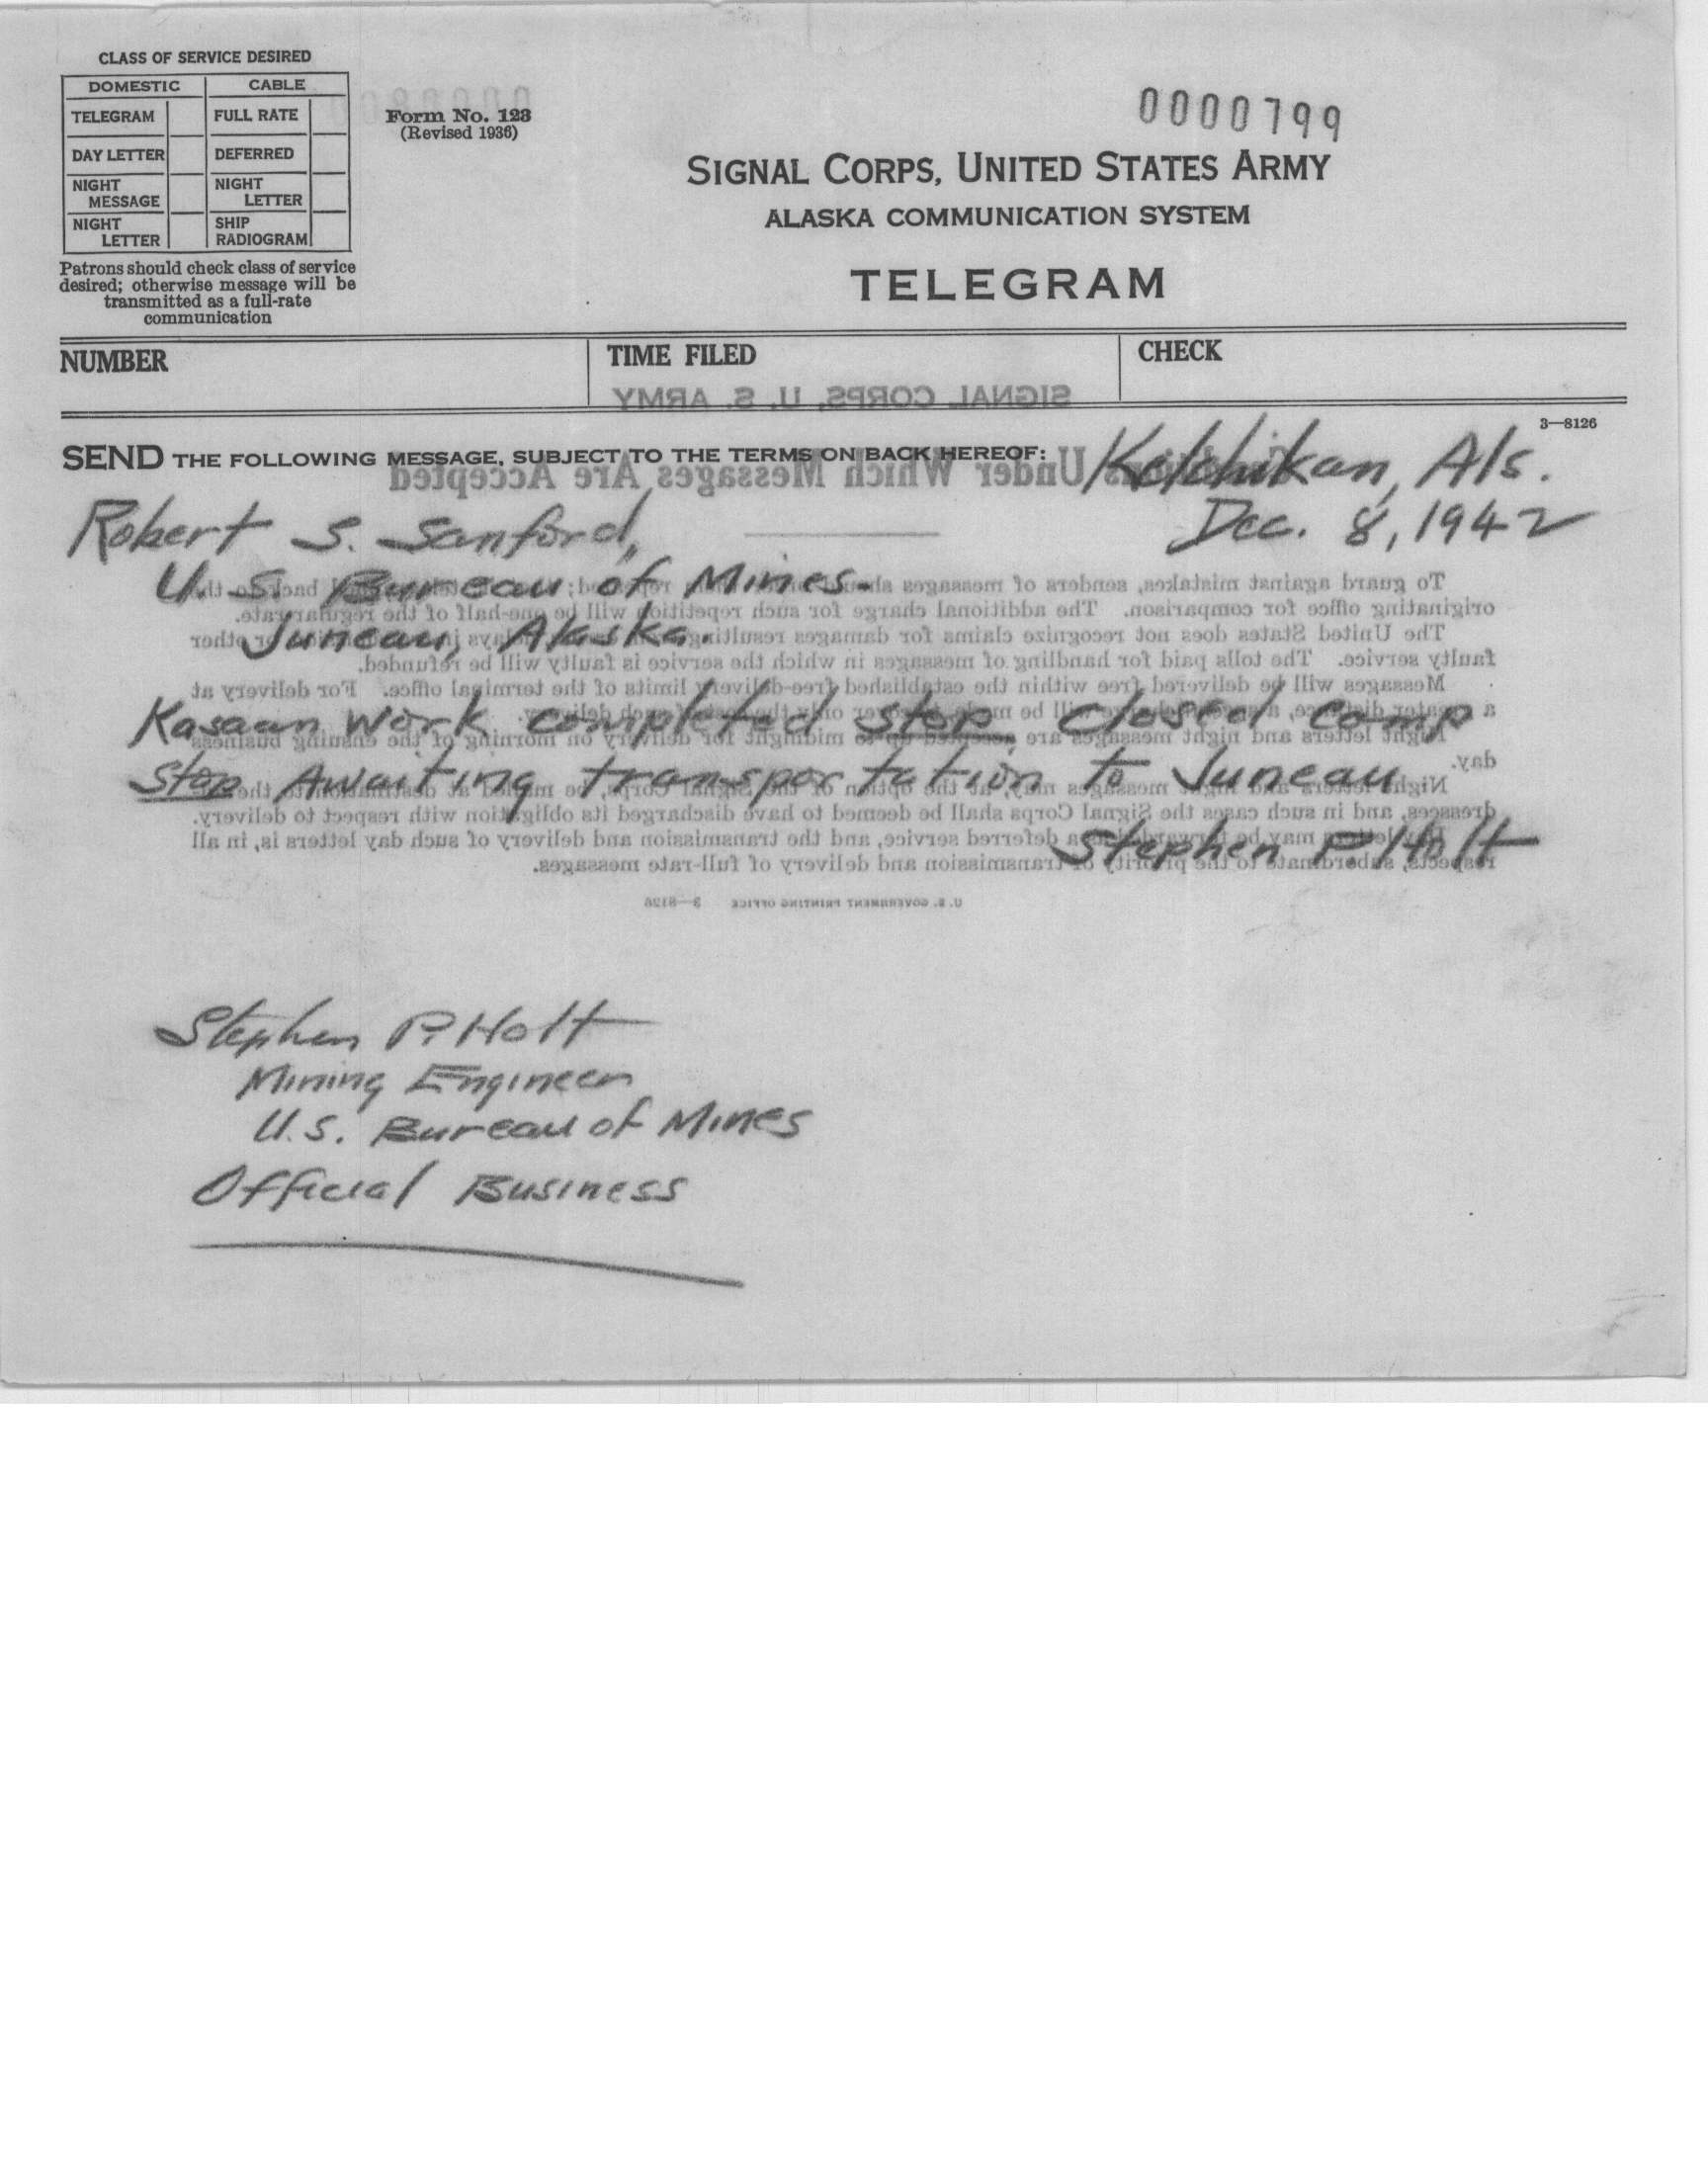 CLASS OF SERVICE DESIRED
DOMESTIC CABLE
TELEGRAM FULL RATE
DAY LETTER DEFERRED
NIGHT MESSAGE NIGHT LETTER
NIGHT LETTER SHIP RADIOGRAM
Patrons should check class of service
desired; otherwise message will be
transmitted as a full-rate
communication
Form No. 123
(Revised 1936)
0000799
SIGNAL CORPS, UNITED STATES ARMY
ALASKA COMMUNICATION SYSTEM
TELEGRAM
NUMBER TIME FILED CHECK
SIGNAL CORPS, U. S. ARMY
3—8126
SEND THE FOLLOWING MESSAGE, SUBJECT TO THE TERMS ON BACK HEREOF:
Under Which Messages Are Accepted
Ketchikan, Als.
Dec. 8, 1942
Robert S. Sanford,
U. S. Bureau of Mines-
Juneau, Alaska.
Kasaan work completed stop closed camp
stop Awaiting transportation to Juneau
Stephen P Holt
U. S. GOVERNMENT PRINTING OFFICE 3—8126
Stephen P. Holt
Mining Engineer
U.S. Bureau of Mines
Official Business